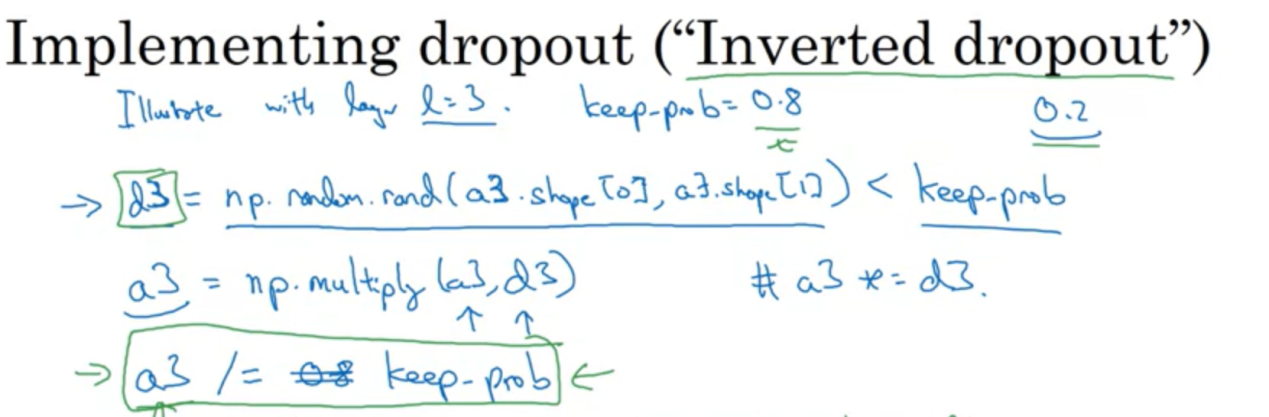 Implementing dropout (“Inverted dropout”)
Illustrate with layer l=3. keep-prob= 0.8 0.2
→ d3 = np.random.rand(a3.shape[0], a3.shape[1]) < keep-prob
a3 = np.multiply(a3, d3) # a3 *= d3.
↑ ↑
→ a3 /= 0.8 keep-prob ←